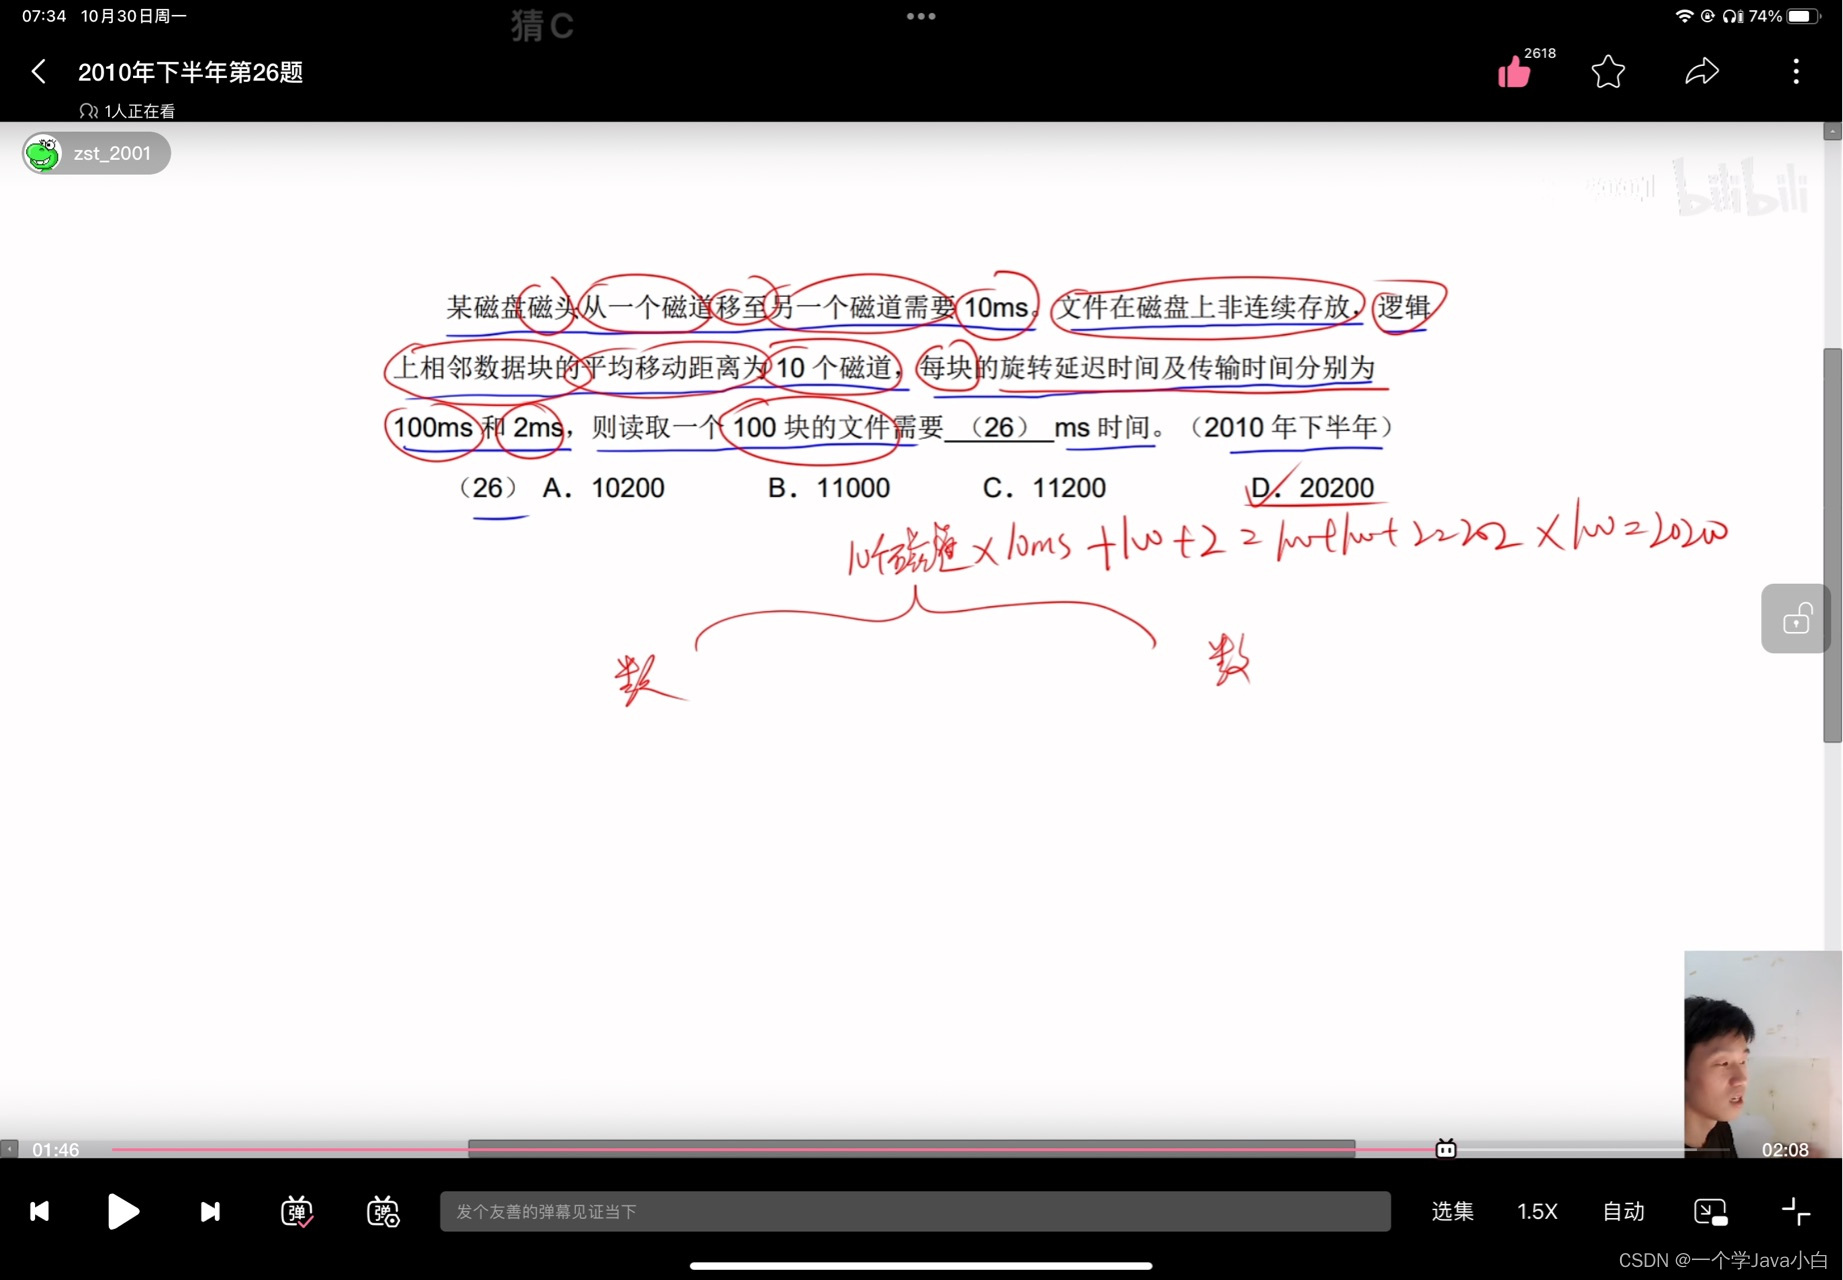 07:34 10月30日周一
猜C
74%
2010年下半年第26题
2618
1人正在看
zst_2001
bilibili
某磁盘磁头从一个磁道移至另一个磁道需要10ms。文件在磁盘上非连续存放，逻辑
上相邻数据块的平均移动距离为10个磁道，每块的旋转延迟时间及传输时间分别为
100ms和2ms，则读取一个100块的文件需要（26）ms时间。（2010年下半年）
（26）A．10200 B．11000 C．11200 D．20200
10个磁道×10ms+100+2=100+100+2=202×100=20200
数 数
01:46
02:08
弹 弹
发个友善的弹幕见证当下
选集 1.5X 自动
CSDN @一个学Java小白